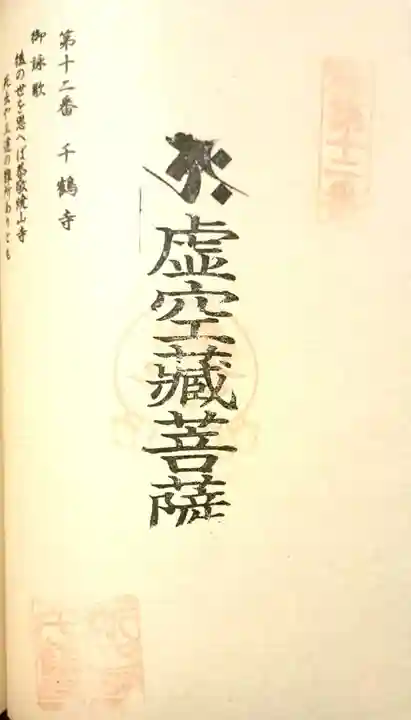 虚空藏菩薩
第十二番 千鶴寺
御詠歌
後の世を思へば恭敬燒山寺
死出や三途の難所ありとも